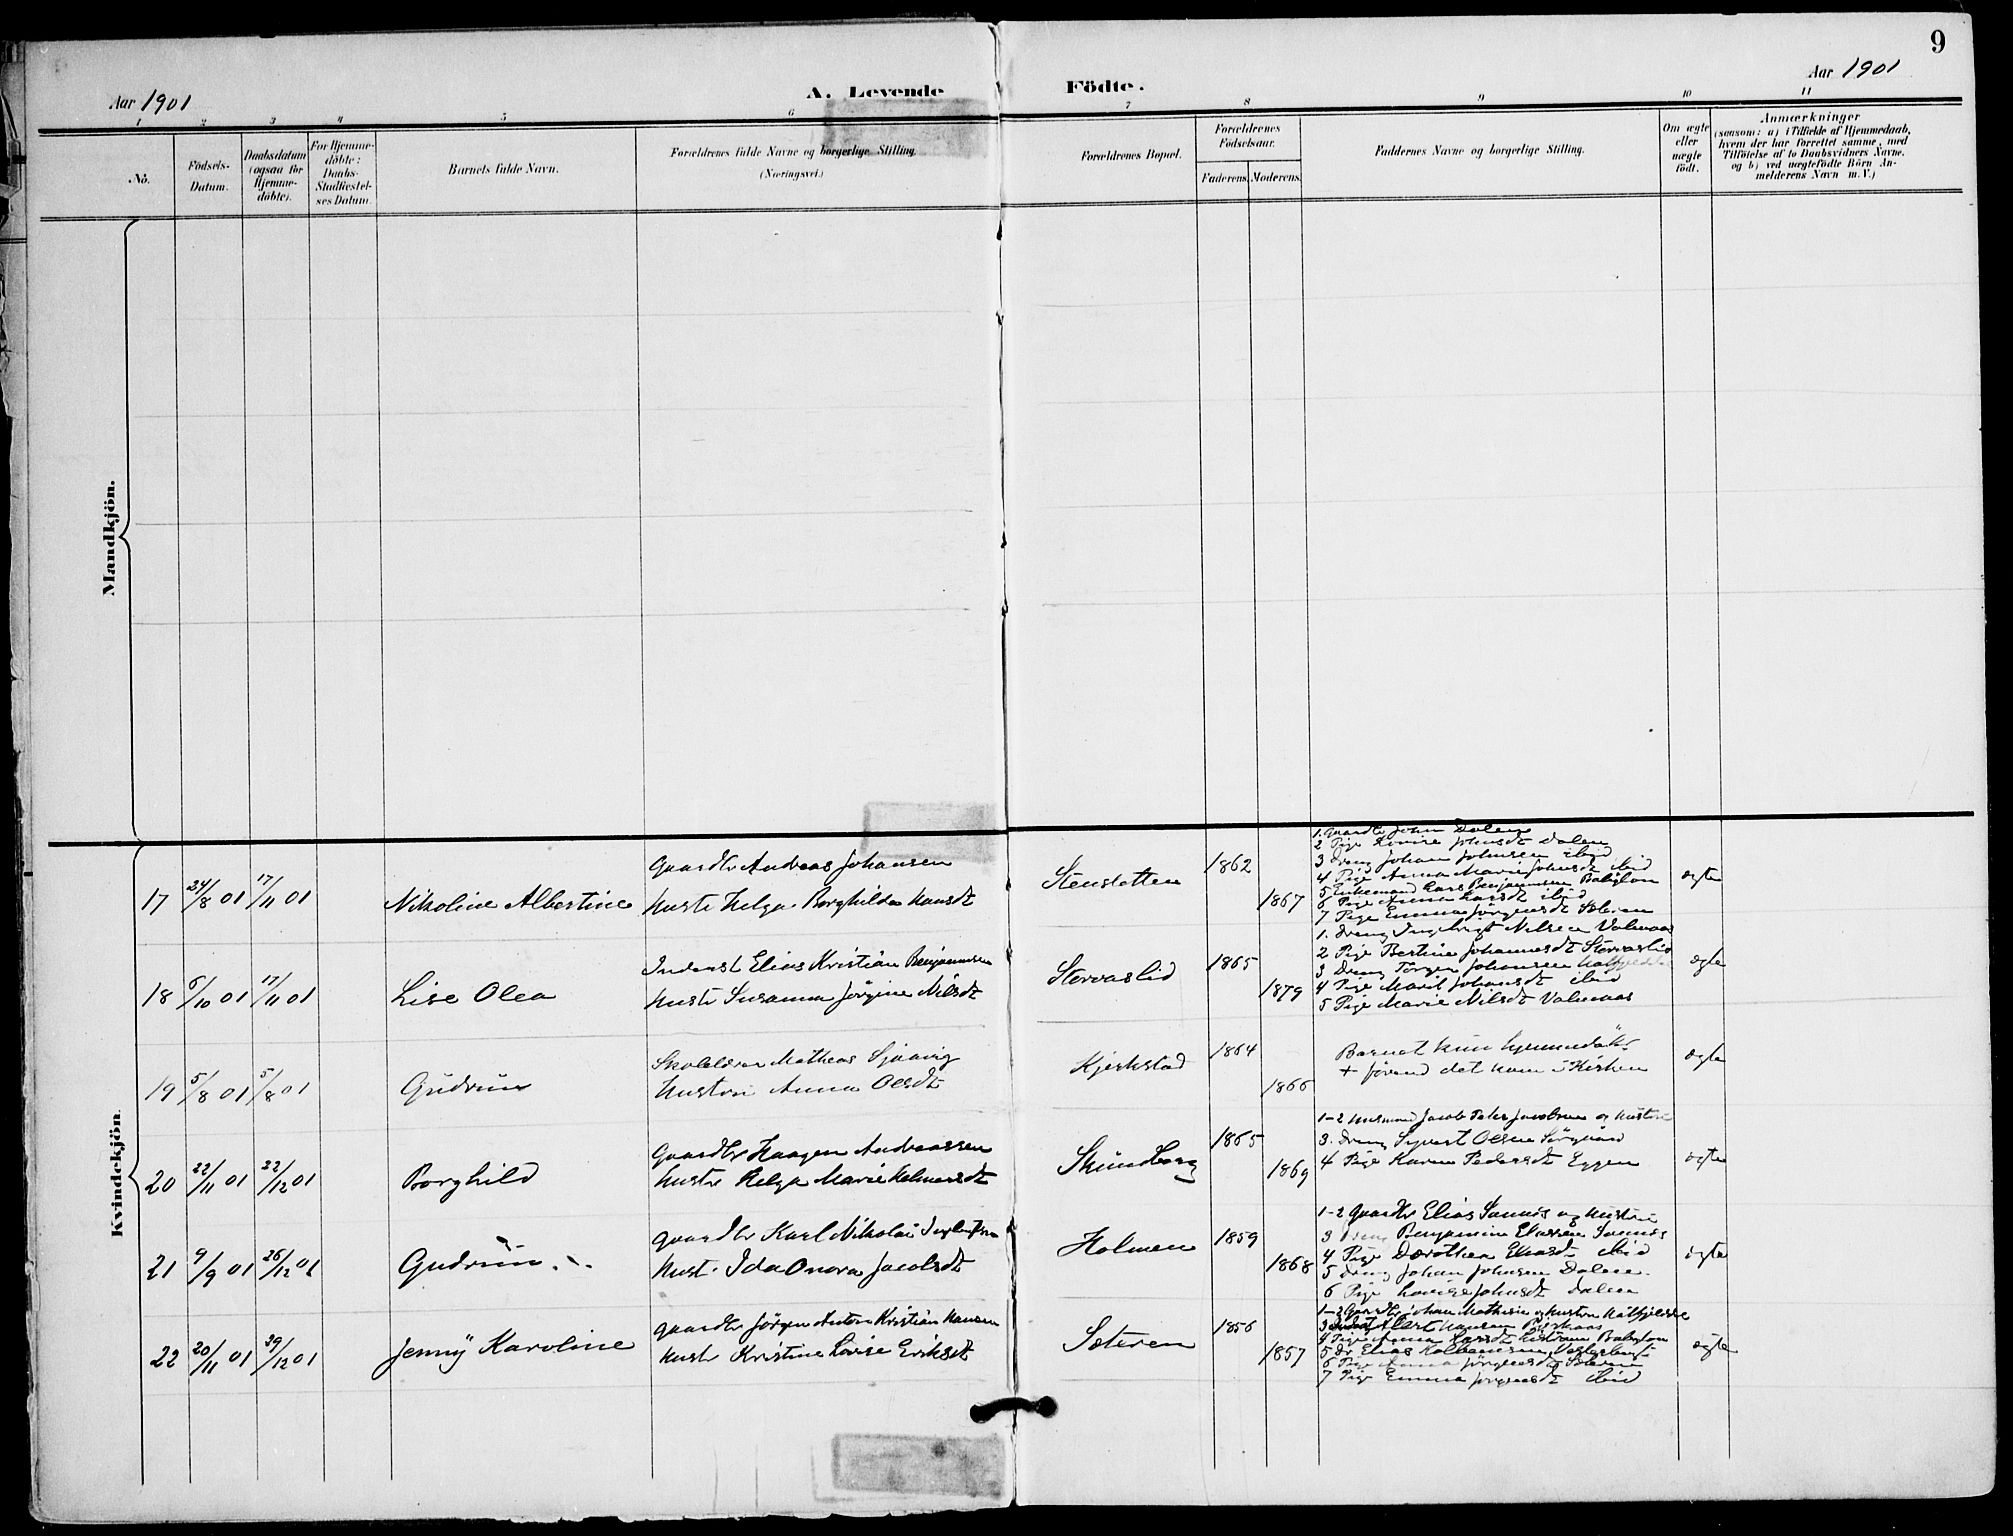 9
Aar 1901
A. Levende
Födte.
Aar 1901
1 2 3 4 5 6 7 8 9 10 11
No.
Födsels-
Datum.
Daabsdatum
(ogsaa for
Hjemme-
döbte).
For Hjemme-
döbte:
Daabs-
Stadfæstel-
ses Datum.
Barnets fulde Navn.
Forældrenes fulde Navne og borgerlige Stilling.
(Næringsvei.)
Forældrenes Bopæl.
Forældrenes
Födselsaar.
Faderens. Moderens.
Faddernes Navne og borgerlige Stilling.
Om ægte
eller
uægte
födt.
Anmærkninger
(saasom: a) i Tilfælde af Hjemmedaab,
hvem der har forrettet samme, med
Tilföielse af to Daabsvidners Navne.
og b) ved uægtefödte Börn An-
melderens Navn m. V.)
Mandkjön.
Kvindekjön.
17 24/8 01 17/11 01
Nikoline Albertine
Gaardbr Andreas Johansen
Hustr Helga Borghilda Hansdt
Stensletten
1862
1867
1. Gaardbr John Dalen
2 Pige Lovise Johnsdt Dalen
3 Dreng Johan Johnsen ibid
4 Pige Anna Marie Johnsdt ibid
5 Enkemand Lars Benjaminsen Babylon
6 Pige Anna Larsdt ibid
7 Pige Emma Jörgensdt Sæteren
ægte
18 6/10 01 17/11 01
Lise Olea
Inderst Elias Kristian Benjaminsen
Hustr Susanna Jörgine Nilsdt
Storvaslid
1865
1879
1. Dreng Ingebrigt Nilsen Valvaas
2 Pige Bertine Johannesdt Storvaslid
3 Dreng Jörgen Johansen
4 Pige Marit Johansdt ibid
5 Pige Marie Nilsdt Valvaas
ægte
19 5/8 01 5/8 01
Gudrun
Skolelærer Mathias Sjaavig
Hustru Anna Olsdt
Kjerkstad
1864
1866
Barnet kun hjemmedöbt
+ förend det kom i Kirken
ægte
20 22/11 01 22/12 01
Borghild
Gaardbr Haagen Andreassen
Hustr Helga Marie Helmersdt
Skundberg
1865
1869
1-2 Husmand Jacob Peter Jacobsen og Hustru
3. Dreng Syvert Olsen
4 Pige Karen Pedersdt Eggen
ægte
21 9/9 01 26/12 01
Gudrun
Gaardbr Karl Nikolai
Hust. Ida Onora Jacobsdt
Holmen
1859
1868
1-2 Gaardbr Elias Sannes og Hustru
3 Dreng Benjamin Eliassen Sannes
4 Pige Dorothea Eliasdt ibid
5 Dreng Johan Johnsen Dalen
6 Pige Lovise Johnsdt Dalen
ægte
22 20/11 01 29/12 01
Jenny Karoline
Gaardbr Jörgen Anton Kristian Hansen
Hustr Kristine Lovise Eriksdt
Sæteren
1856
1857
1-2 Gaardbr Johan Mathisen og Hustru
3 Albert Hansen
4 Pige Anna Larsdt Babylon
5 Dr Elias
6 Pige Anna Jörgensdt Sæteren
7 Pige Emma Jörgensdt ibid
ægte